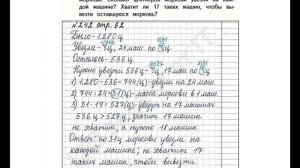 дой машине? Хватит ли 17 таких машин, чтобы вы-
везти оставшуюся морковь?
№242 стр. 62
Было - 1280 ц
Увезли - ?, 24 маш. по ? ц
Осталось - 536 ц
Нужно увезти 536 ц - ?, 17 маш. по ? ц
1) 1280 - 536 = 744 (ц) - увезли 24 машины
2) 744 : 24 = 31 (ц) - масса моркови в 1 маш.
3) 31 · 17 = 527 (ц) - увезут на 17 машинах
536 ц > 527 ц, значит 17 машин
не хватит, а нужно 18 машин
Ответ: по 31 ц моркови увезли на
каждой машине; не хватит 17
таких машин, чтобы вывезти